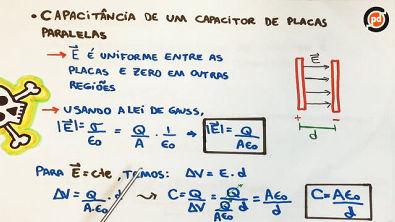 • CAPACITÂNCIA DE UM CAPACITOR DE PLACAS
PARALELAS
pd
→ E⃗ É UNIFORME ENTRE AS
PLACAS E ZERO EM OUTRAS
REGIÕES
E⃗
+ −
d
→ USANDO A LEI DE GAUSS,
|E⃗| = σ/ε₀ = Q/A · 1/ε₀ → |E⃗| = Q/Aε₀
PARA E⃗ = cte, TEMOS: ΔV = E · d
ΔV = Q/A·ε₀ · d ⇝ C = Q/ΔV = Q/(Q d/Aε₀) = Aε₀/d C = Aε₀/d